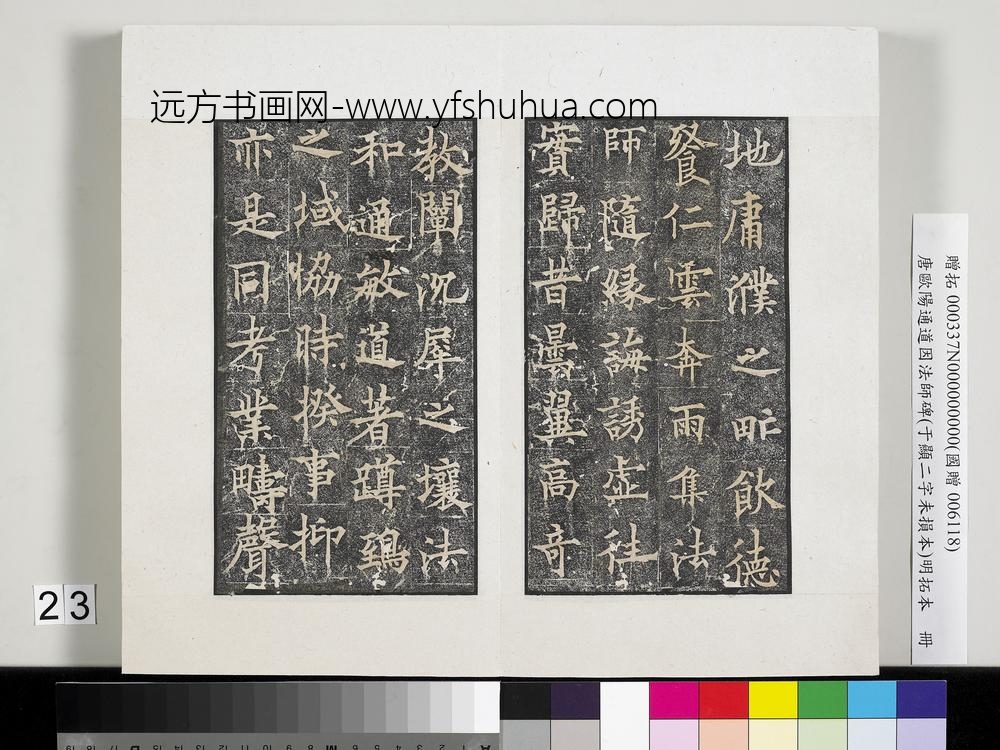 远方书画网-www.yfshuhua.com
地庸濮之甿飲德
飡仁雲奔雨集法
師隨緣誨誘虛往
實歸昔曇翼高奇
教闡沉犀之壤法
和通敏道著蹲鵄
之域恊時揆事抑
亦是同考業疇聲
贈拓 000337N000000000(國贈 006118)
唐歐陽通道因法師碑(于顯二字未損本)明拓本 冊
23